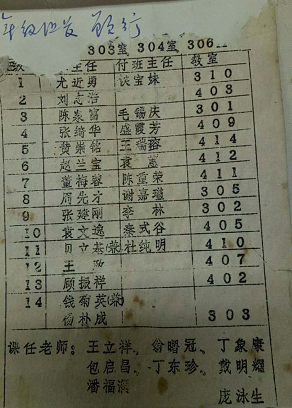 年级
303室 304室 306
主任 付班主任 教室
1 尤近勇 谈宝妹 310
2 刘志洁 403
3 陈泉富 毛锡庆 301
4 张绮华 盛霞芳 409
5 黄崇铭 王瑞蓉 414
6 赵兰宝 袁 412
7 董梅蓉 陈重荣 411
8 周先才 谢嘉 305
9 张建刚 李林 302
10 袁文逸 秦式谷 405
11 贝立 杜纯明 410
12 王 407
13 顾振祥 402
14 钱菊英
杨朴成 303
课任老师: 王立祥、翁曙冠、丁象康
包启昌、丁东珍、戴明耀
潘福
庞泳生